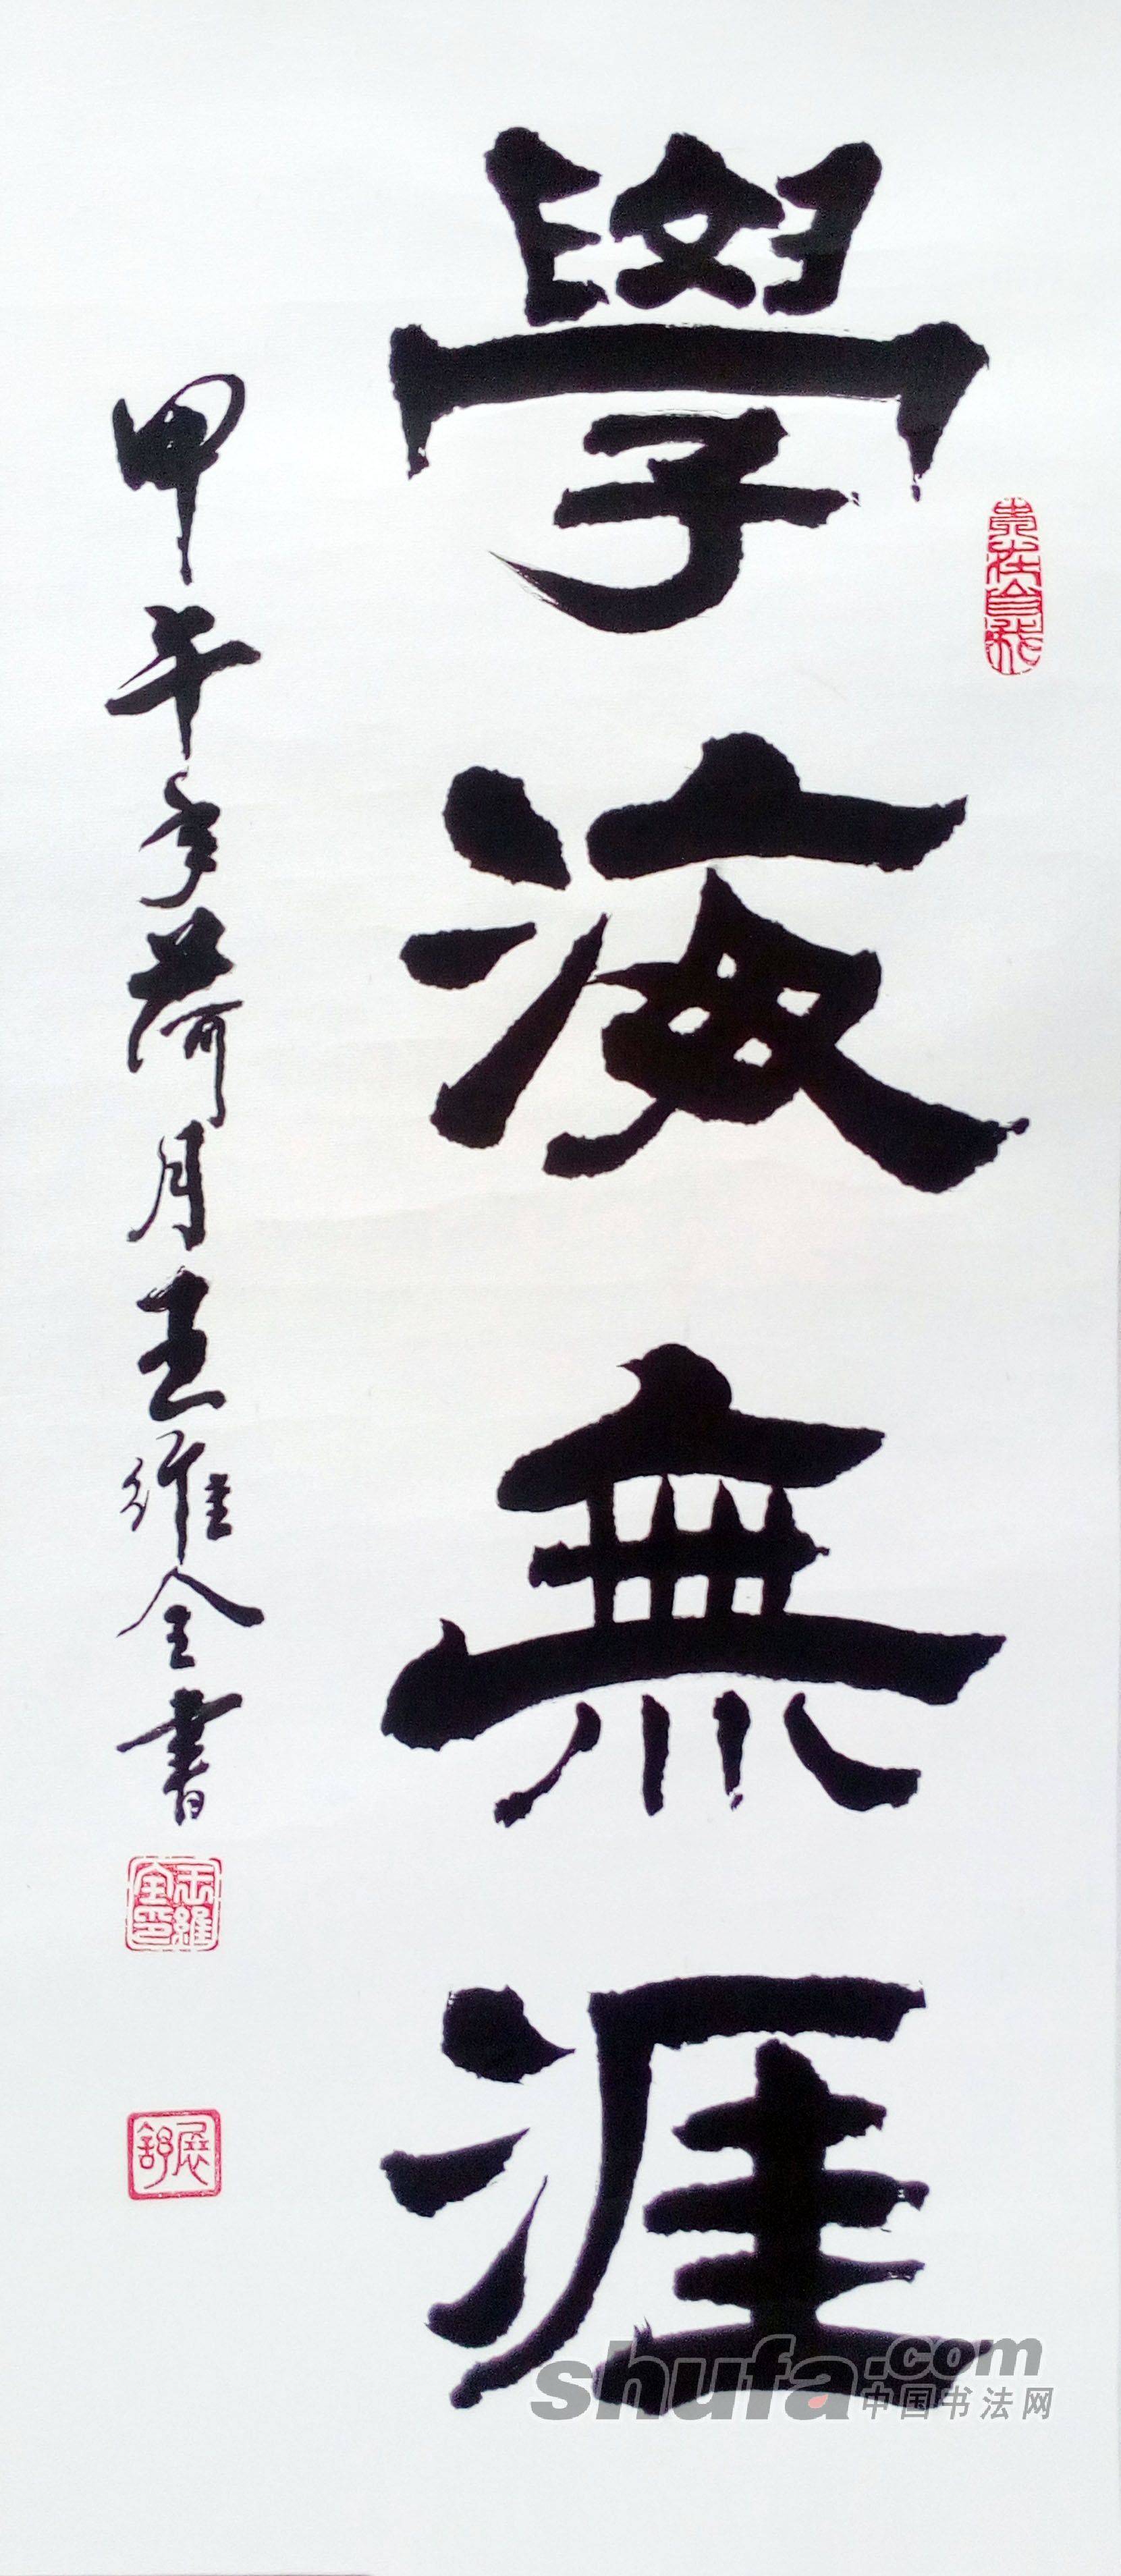 學海無涯
甲午年荷月王維全書
王維全印
展舒
shufa.com
中国书法网